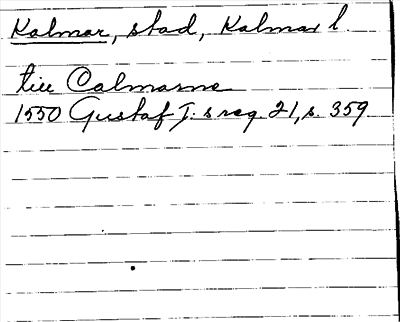 Kalmar, stad, Kalmar l.
till Calmarne
1550 Gustaf I:s reg. 21, s. 359